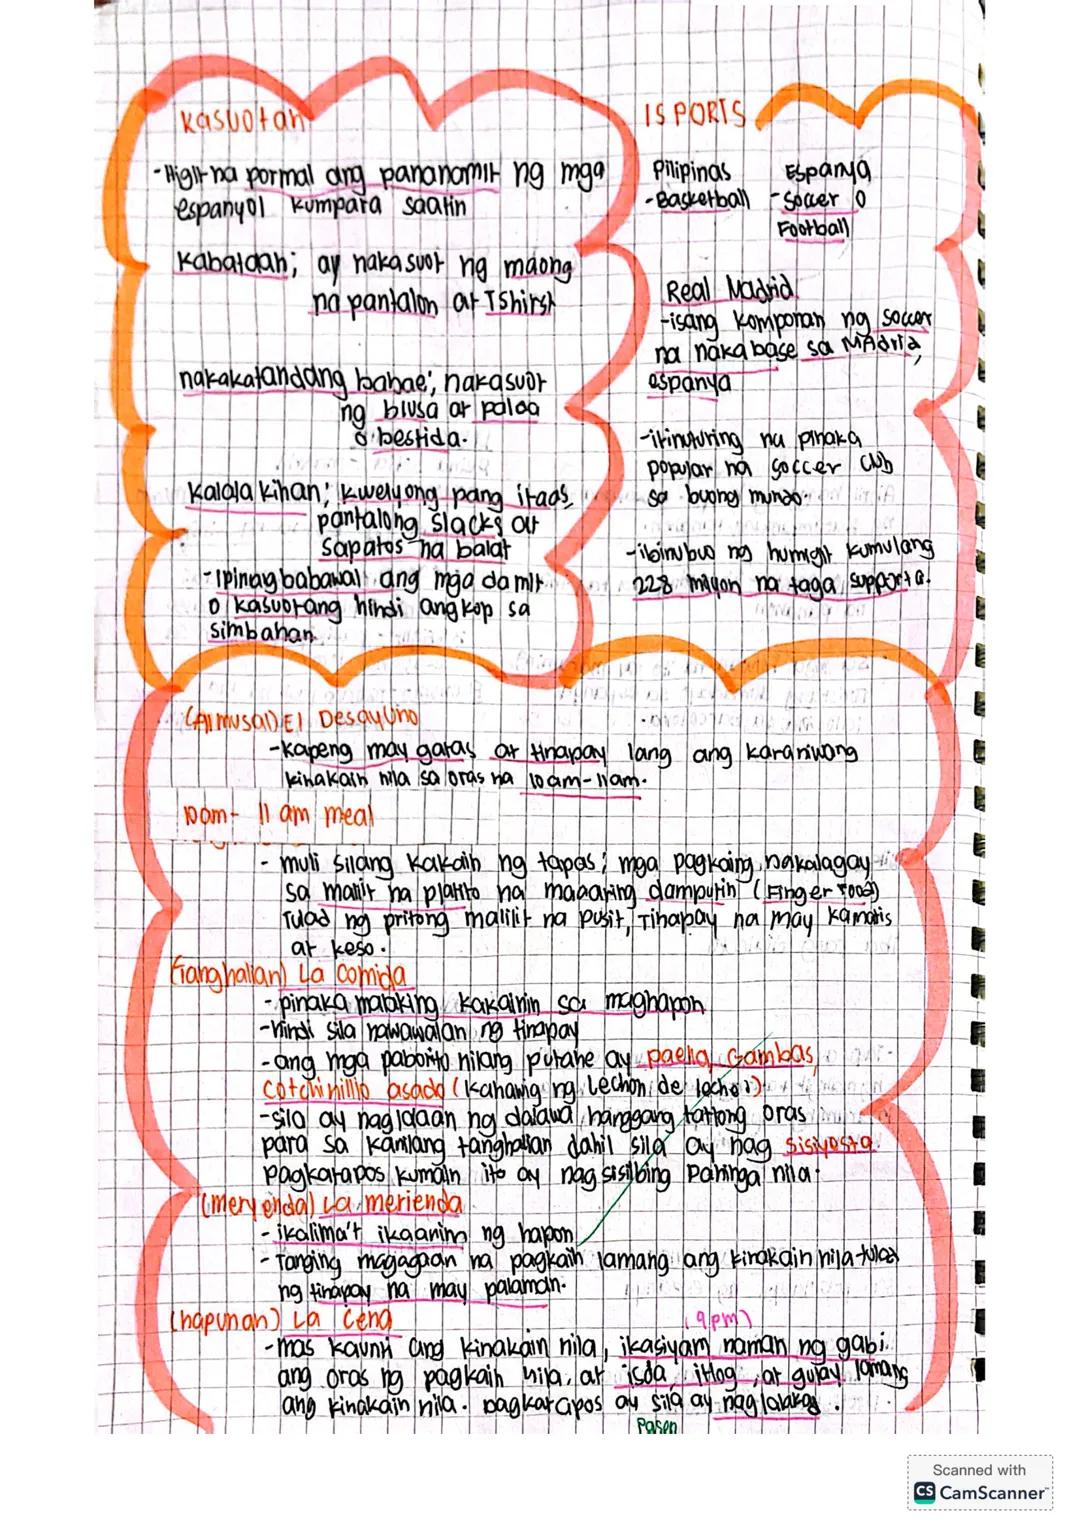 Kasuotan
- Higit na pormal ang pananamit ng mga
espanyol kumpara saatin
Kabataan; ay nakasuot ng maong
na pantalon at Tshirst
nakakatandang babae; nakasuot
ng blusa at palda
o bestida.
Kalalakihan; kwelyong pang itaas
pantalong slacks at
sapatos na balat
- Ipinagbabawal ang mga damit
o kasuotang hindi angkop sa
simbahan.
ISPORTS
Pilipinas Espanya
- Basketball - Soccer o
Football
Real Madrid
- isang komponan ng soccer
na nakabase sa MAdrid,
espanya
- itinuturing na pinaka
popular na soccer club
sa buong mundo.
- ibinubuo ng humigit kumulang
228 milyon na taga supporta.
(Almusal) El Desayuno
- Kapeng may gatas at tinapay lang ang karaniwang
kinakain nila sa oras na 10am-11am.
10am- 11 am meal
- muli silang kakain ng tapas; mga pagkaing nakalagay
sa maliit na platito na maaaring damputin (Finger food)
Tulad ng pritong maliliit na pusit, Tinapay na may kamatis
at keso.
(Tanghalian) La Comida
- pinaka malaking kakainin sa maghapon
- hindi sila nawawalan ng tinapay
- ang mga paborito nilang putahe ay paella, Gambas,
cotchinillo asado (Kahawig ng Lechon de leche)
- sila ay naglalaan ng dalawa hanggang tatlong oras
para sa kanilang tanghalian dahil sila ay nag sisiyesta.
pagkatapos kumain ito ay nagsisilbing pahinga nila.
(meryenda) La merienda
- ikalima't ikaanim ng hapon
- Tanging magagaan na pagkain lamang ang kinakain nila tulad
ng tinapay na may palaman.
(hapunan) La Cena (9pm)
- mas kaunti ang kinakain nila, ikasiyam naman ng gabi
ang oras ng pagkain nila, at isda, itlog, at gulay lamang
ang kinakain nila. pagkatapos ay sila ay naglalakad.
Paseo
Scanned with
CS CamScanner